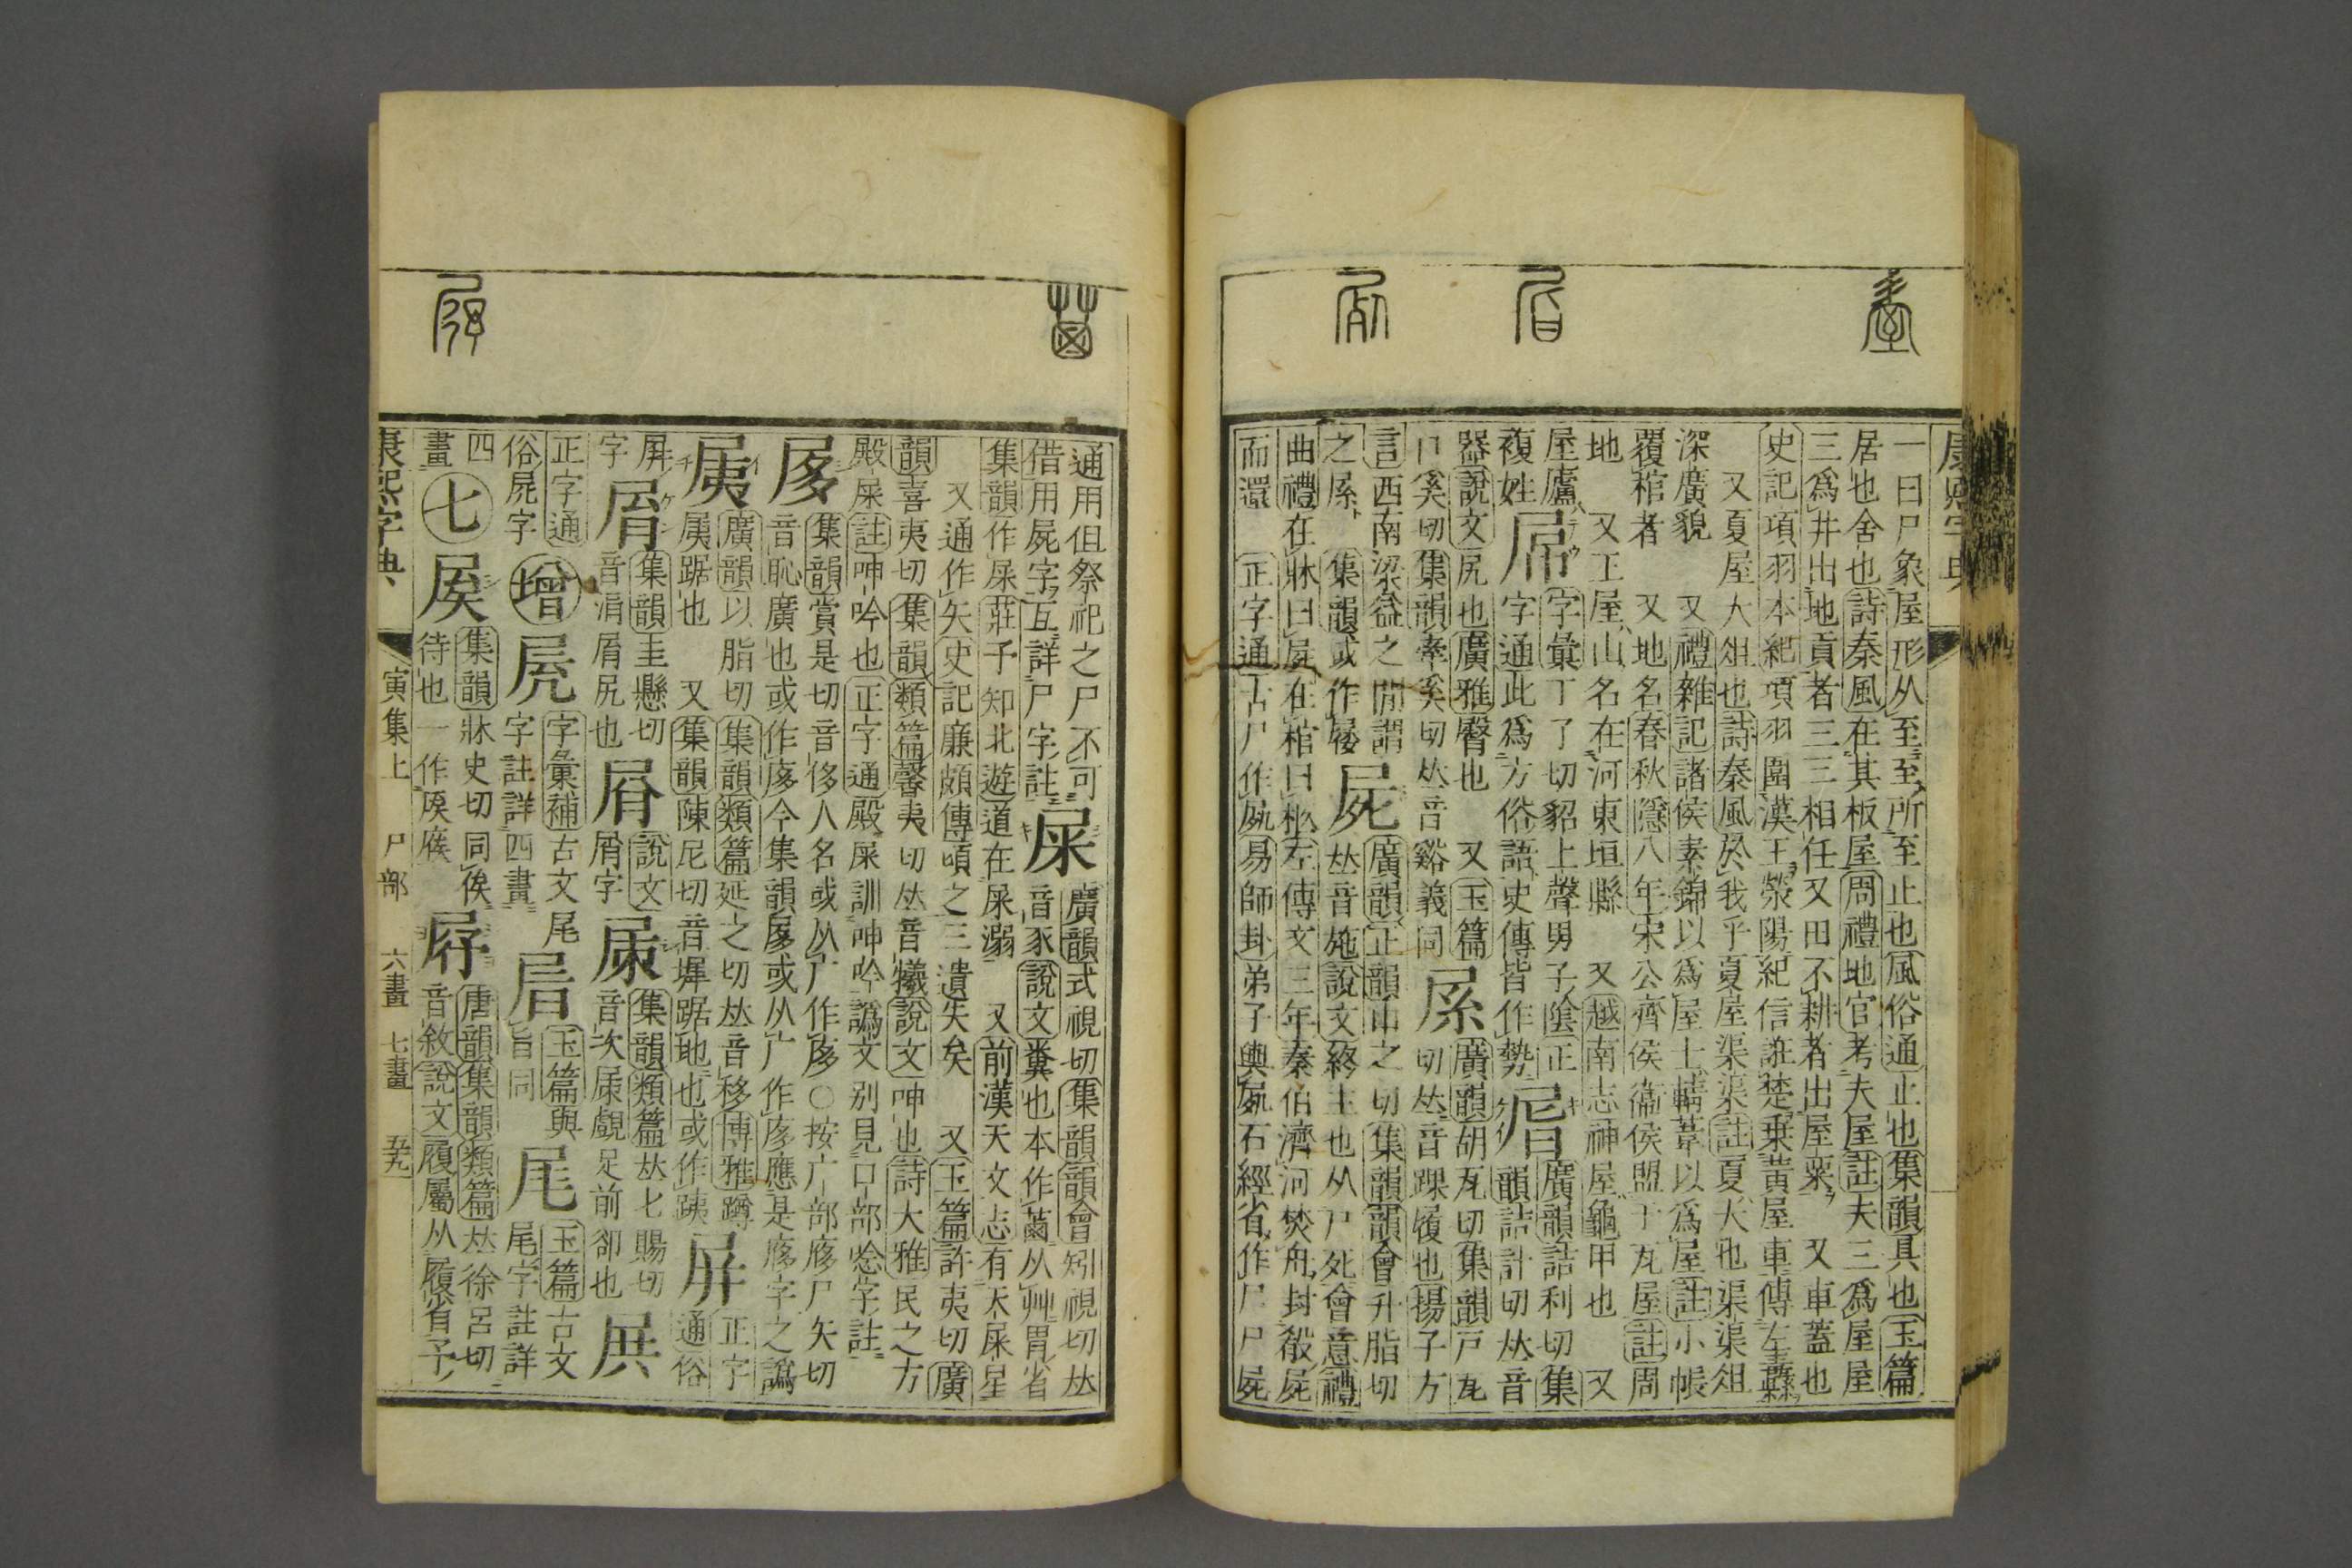 康熙字典
一曰尸象屋形从至至所至止也風俗通止也集韻具也玉篇
居也舍也詩秦風在其板屋周禮地官考夫屋註夫三爲屋屋
三爲井出地貢者三三相任又田不耕者出屋粟 又車蓋也
史記項羽本紀項羽圍漢王滎陽紀信誑楚乗黃屋車傳左纛
又夏屋大俎也詩秦風於我乎夏屋渠渠註夏大也渠渠俎
深廣貌 又禮雜記諸侯素錦以爲屋士輤葦以爲屋註小帳
覆棺者 又地名春秋隱八年宋公齊侯衞侯盟于瓦屋註周
地 又王屋山名在河東垣縣 又越南志神屋龜甲也 又
屋廬
複姓
屌
字彙丁了切貂上聲男子陰正
字通此爲方俗語史傳皆作勢
𡱁
廣韻詰利切集
韻詰計切𠀤音
器說文尻也廣雅臀也 又玉篇
口奚切集韻牽奚切𠀤音谿義同
屎
廣韻胡瓦切集韻戸瓦
切𠀤音踝履也揚子方
言西南梁益之閒謂
之屎 集韻或作屦
屍
廣韻正韻申之切集韻韻會升脂切
𠀤音施說文終主也从尸死會意禮
曲禮在牀曰屍在棺曰柩左傳文三年秦伯濟河焚舟封殽屍
而還 正字通古尸作屍易師卦弟子輿屍石經省作尸尸屍
通用但祭祀之尸不可
借用屍字互詳尸字註
屎
廣韻式視切集韻韻會矧視切𠀤
音豕說文糞也本作菡从艸胃省
集韻作屎莊子知北遊道在屎溺 又前漢天文志有天屎星
又通作矢史記廉頗傳頃之三遺矢矣 又玉篇許夷切廣
韻喜夷切集韻類篇馨夷切𠀤音犧說文呻也詩大雅民之方
殿屎註呻吟也正字通殿屎訓呻吟譌文別見口部唸字註
㞔
集韻賞是切音侈人名或从广作㢋○按广部㢋尸矢切
音恥廣也或作㢋今集韻㞔或从广作㢋應是㢋字之譌
𡱐
廣韻以脂切集韻類篇延之切𠀤音移博雅蹲
𡱐踞也 又集韻陳尼切音墀踞地也或作踑
屏
正字
通俗
屏
字
屑
集韻圭懸切
音涓屑尻也
屑
說文
屑字
㞖
集韻類篇𠀤七賜切
音次㞖覰足前卻也
𡱒
正字通
俗屍字
增
𡱕
字彙補古文尾
字註詳四畫
𡱗
玉篇與
旨同
𡱘
玉篇古文
尾字註詳
四
畫
七
㞒
集韻牀史切同俟
待也一作㞒㢊
㞊
唐韻集韻類篇𠀤徐呂切
音敘說文履屬从履省予
康熙字典
寅集上 尸部 六畫 七畫